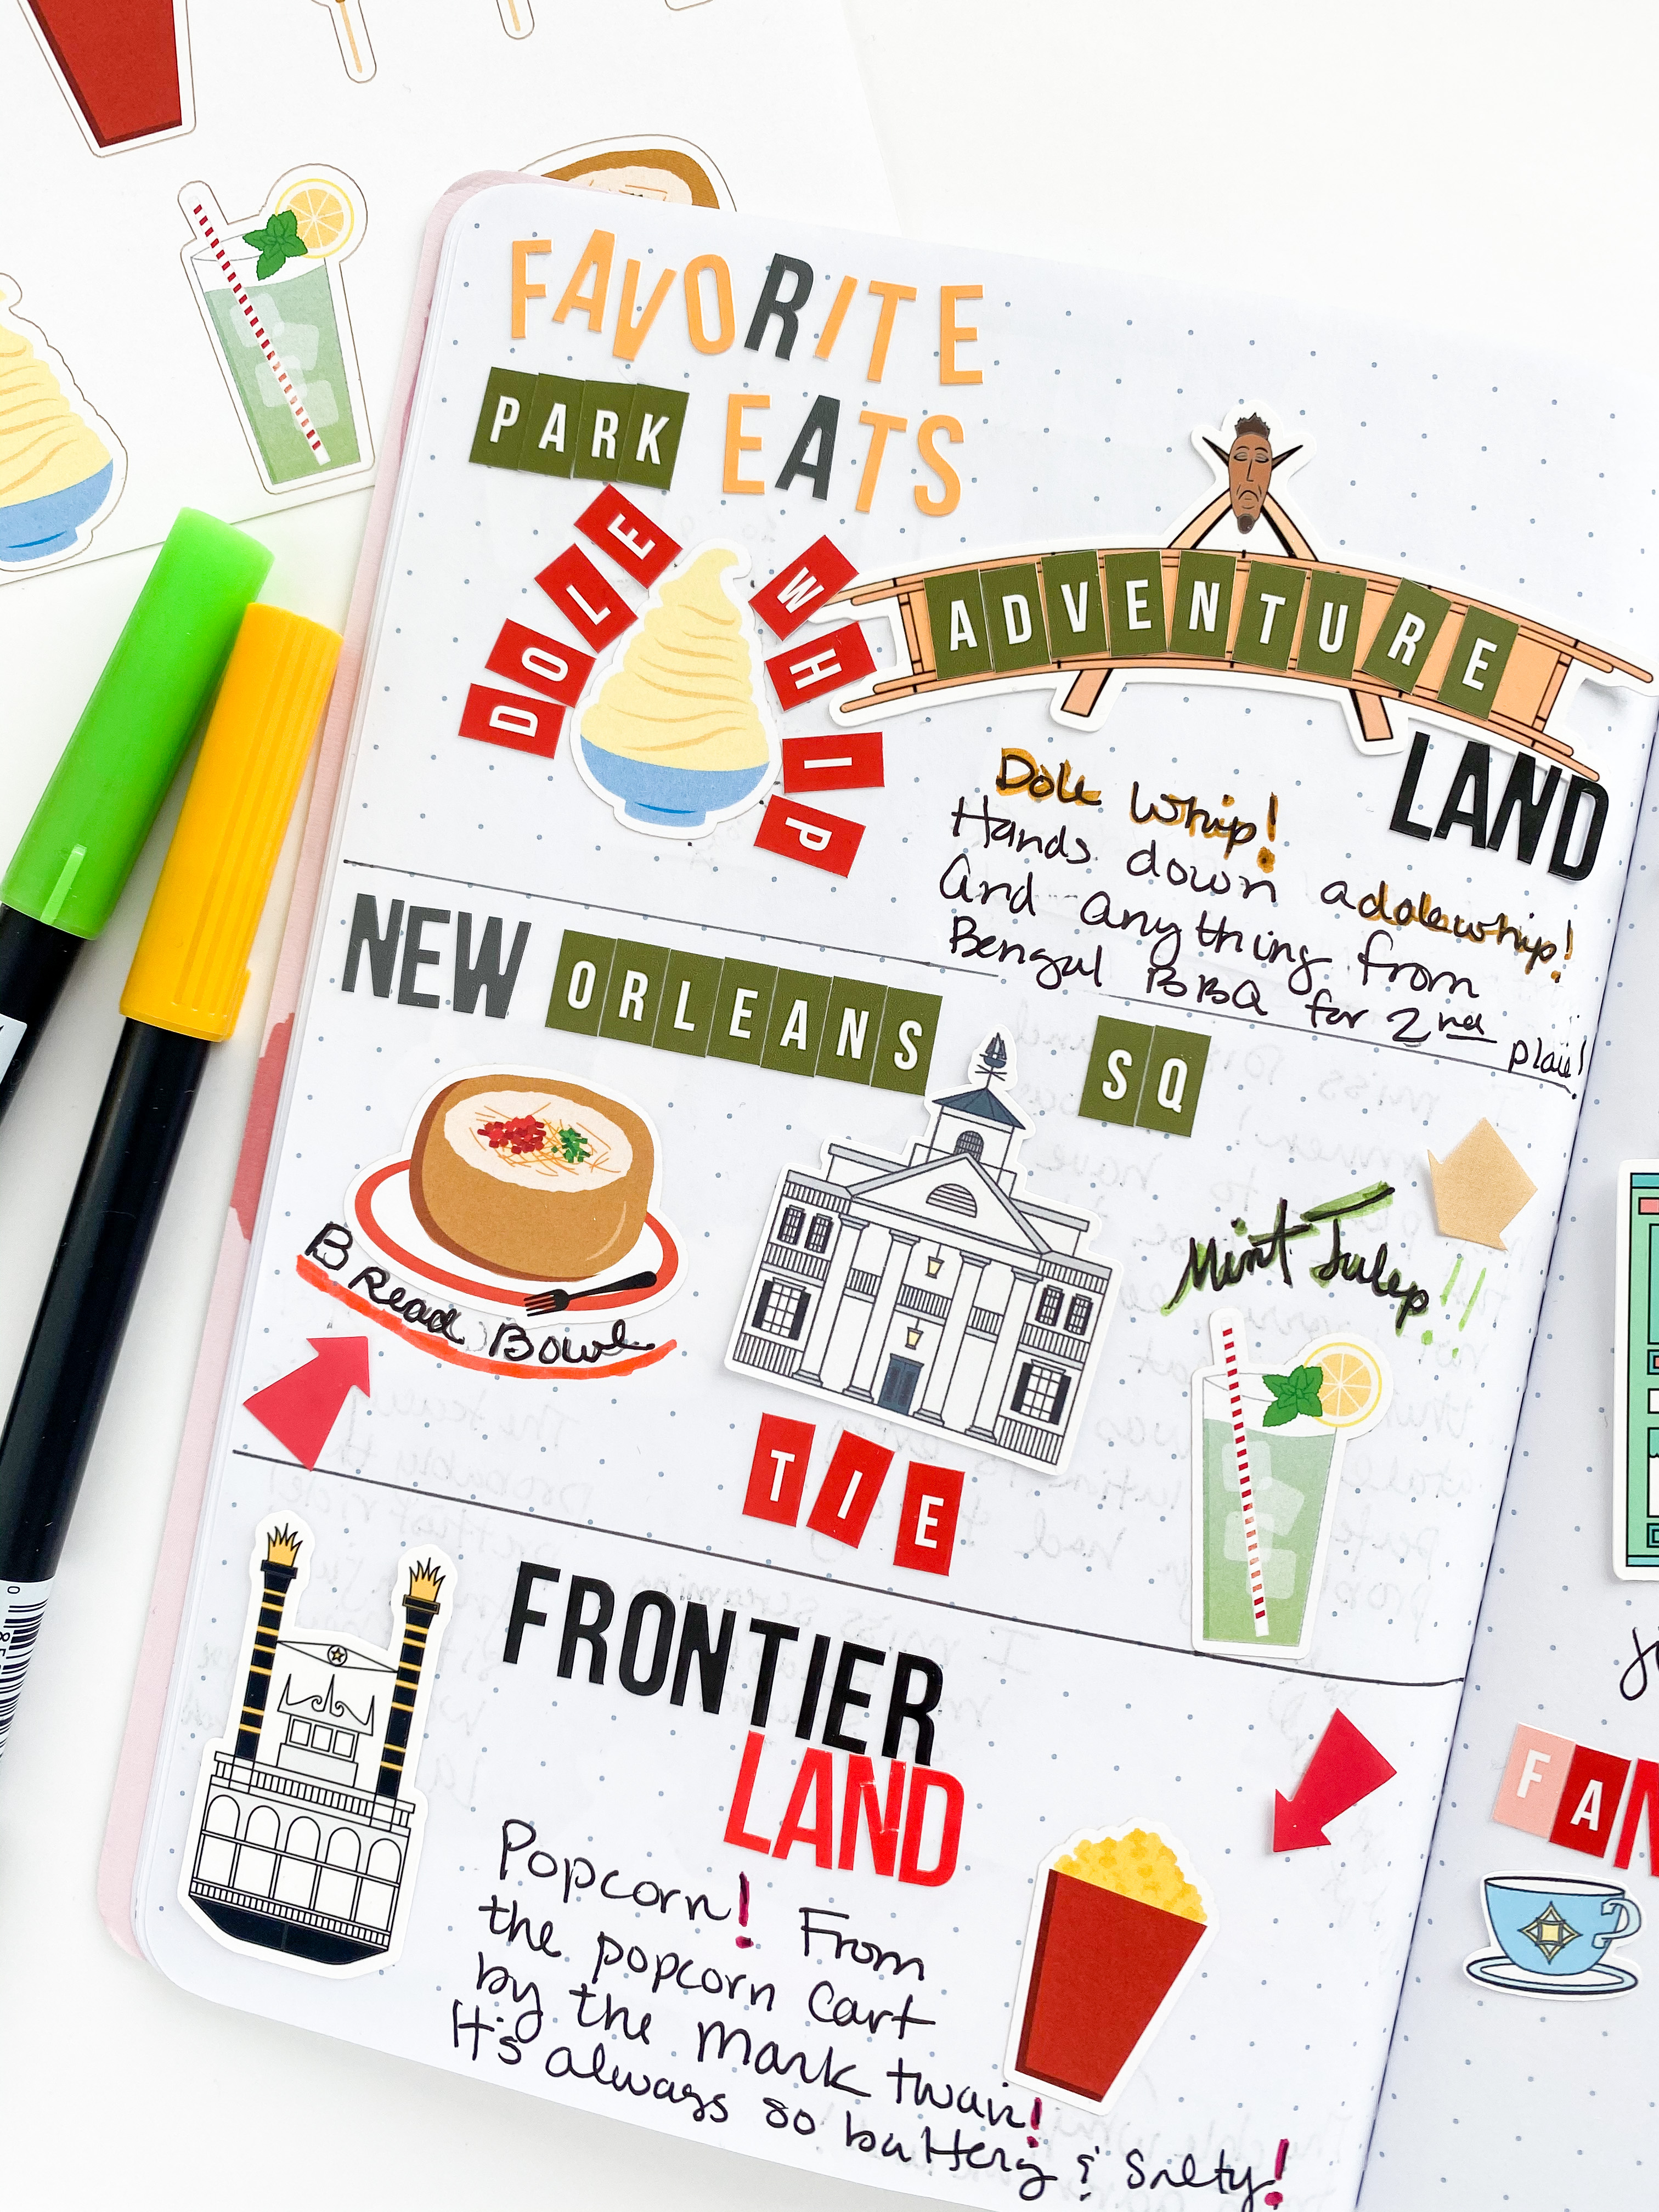 FAVORITE
PARK EATS
DOLE WHIP
ADVENTURE
LAND
Dole Whip!
Hands down adolewhip!
And anything from
Bengal BBQ for 2nd
NEW ORLEANS SQ
Bread Bowl
Mint Julep!!
TIE
FRONTIER
LAND
Popcorn! From
the popcorn Cart
by the Mark twain!
It's always so buttery & Salty!
FAN